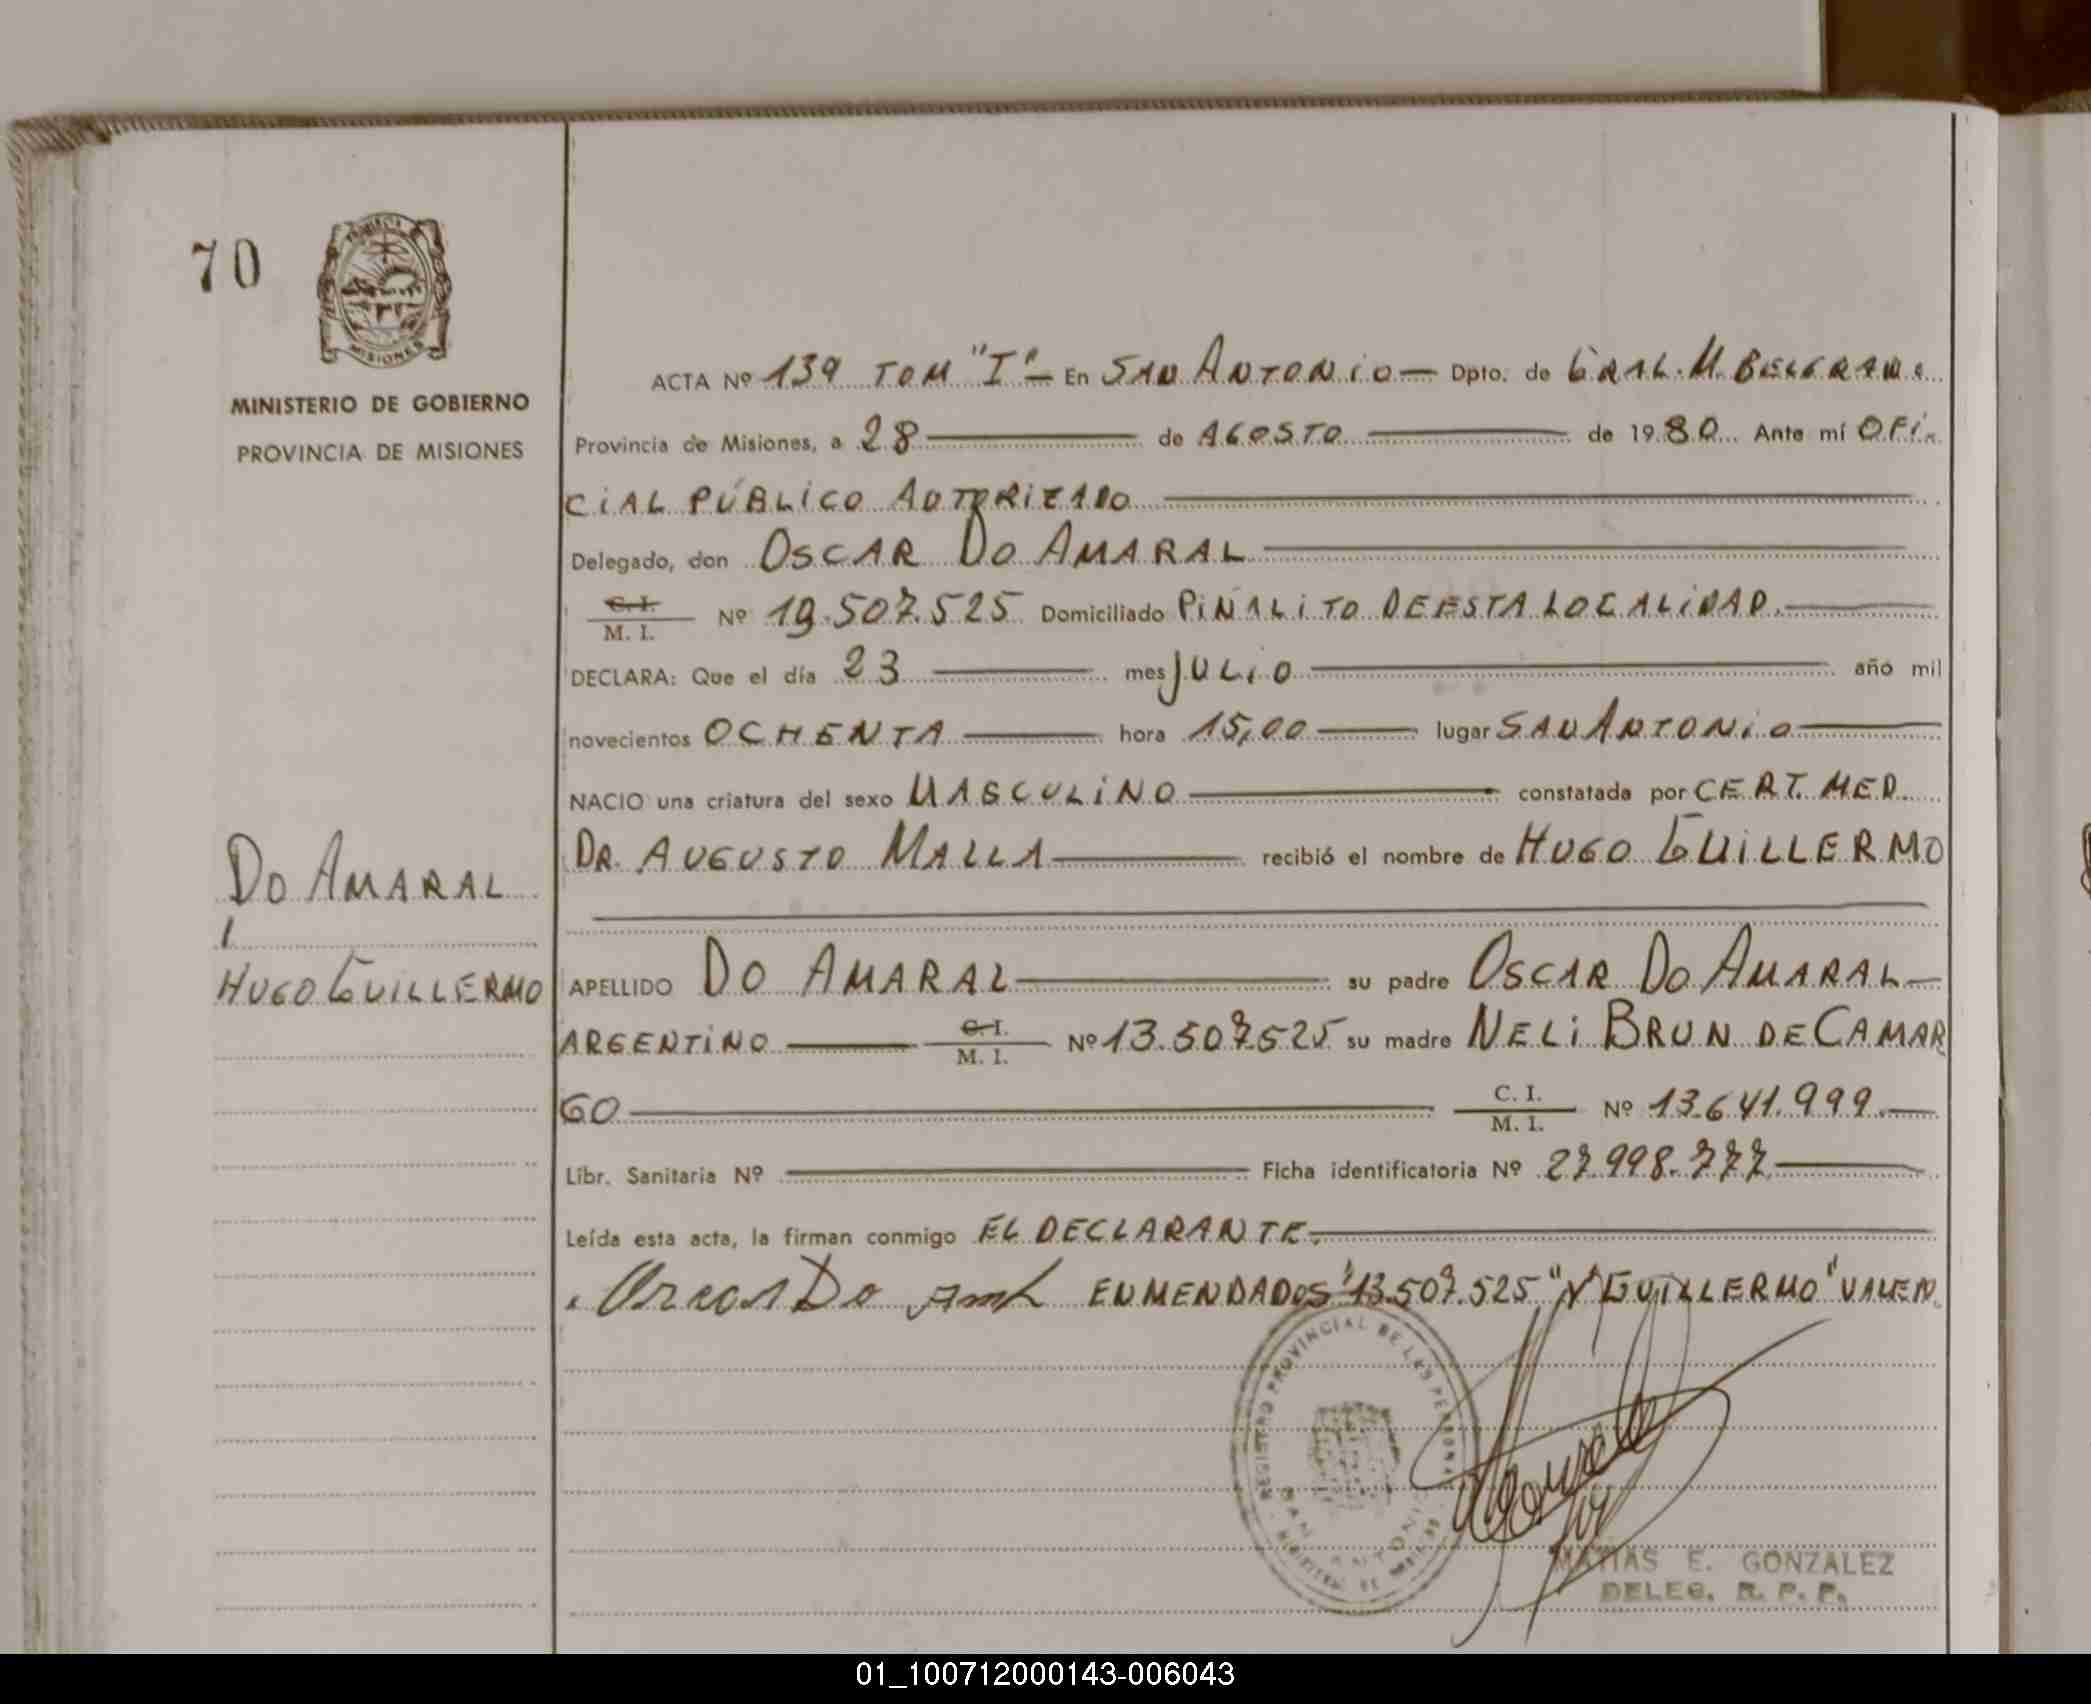 70
PROVINCIA DE
MISIONES
MINISTERIO DE GOBIERNO
PROVINCIA DE MISIONES
DO AMARAL
HUGO GUILLERMO
ACTA Nº 139 TOM "I" En SAN ANTONIO Dpto. de GRAL. M. BELGRANO
Provincia de Misiones, a 28 de AGOSTO de 1980 Ante mí OFI-
CIAL PÚBLICO AUTORIZADO
Delegado, don OSCAR DO AMARAL
C. I.
M. I. Nº 19.507.525 Domiciliado PIÑALITO DE ESTA LOCALIDAD.
DECLARA: Que el día 23 mes JULIO año mil
novecientos OCHENTA hora 15,00 lugar SAN ANTONIO
NACIO una criatura del sexo MASCULINO constatada por CERT. MED.
DR. AUGUSTO MALLA recibió el nombre de HUGO GUILLERMO
APELLIDO DO AMARAL su padre OSCAR DO AMARAL
ARGENTINO C. I. M. I. Nº 13.507.525 su madre NELI BRUN DE CAMAR
GO C. I. M. I. Nº 13.641.999
Libr. Sanitaria Nº Ficha identificatoria Nº 27.998.777
Leída esta acta, la firman conmigo EL DECLARANTE.
ENMENDADOS "13.507.525" Y "GUILLERMO" VALEN.
REGISTRO PROVINCIAL DE LAS PERSONAS
SAN ANTONIO
MATIAS E. GONZALEZ
DELEG. R. P. P.
01_100712000143-006043